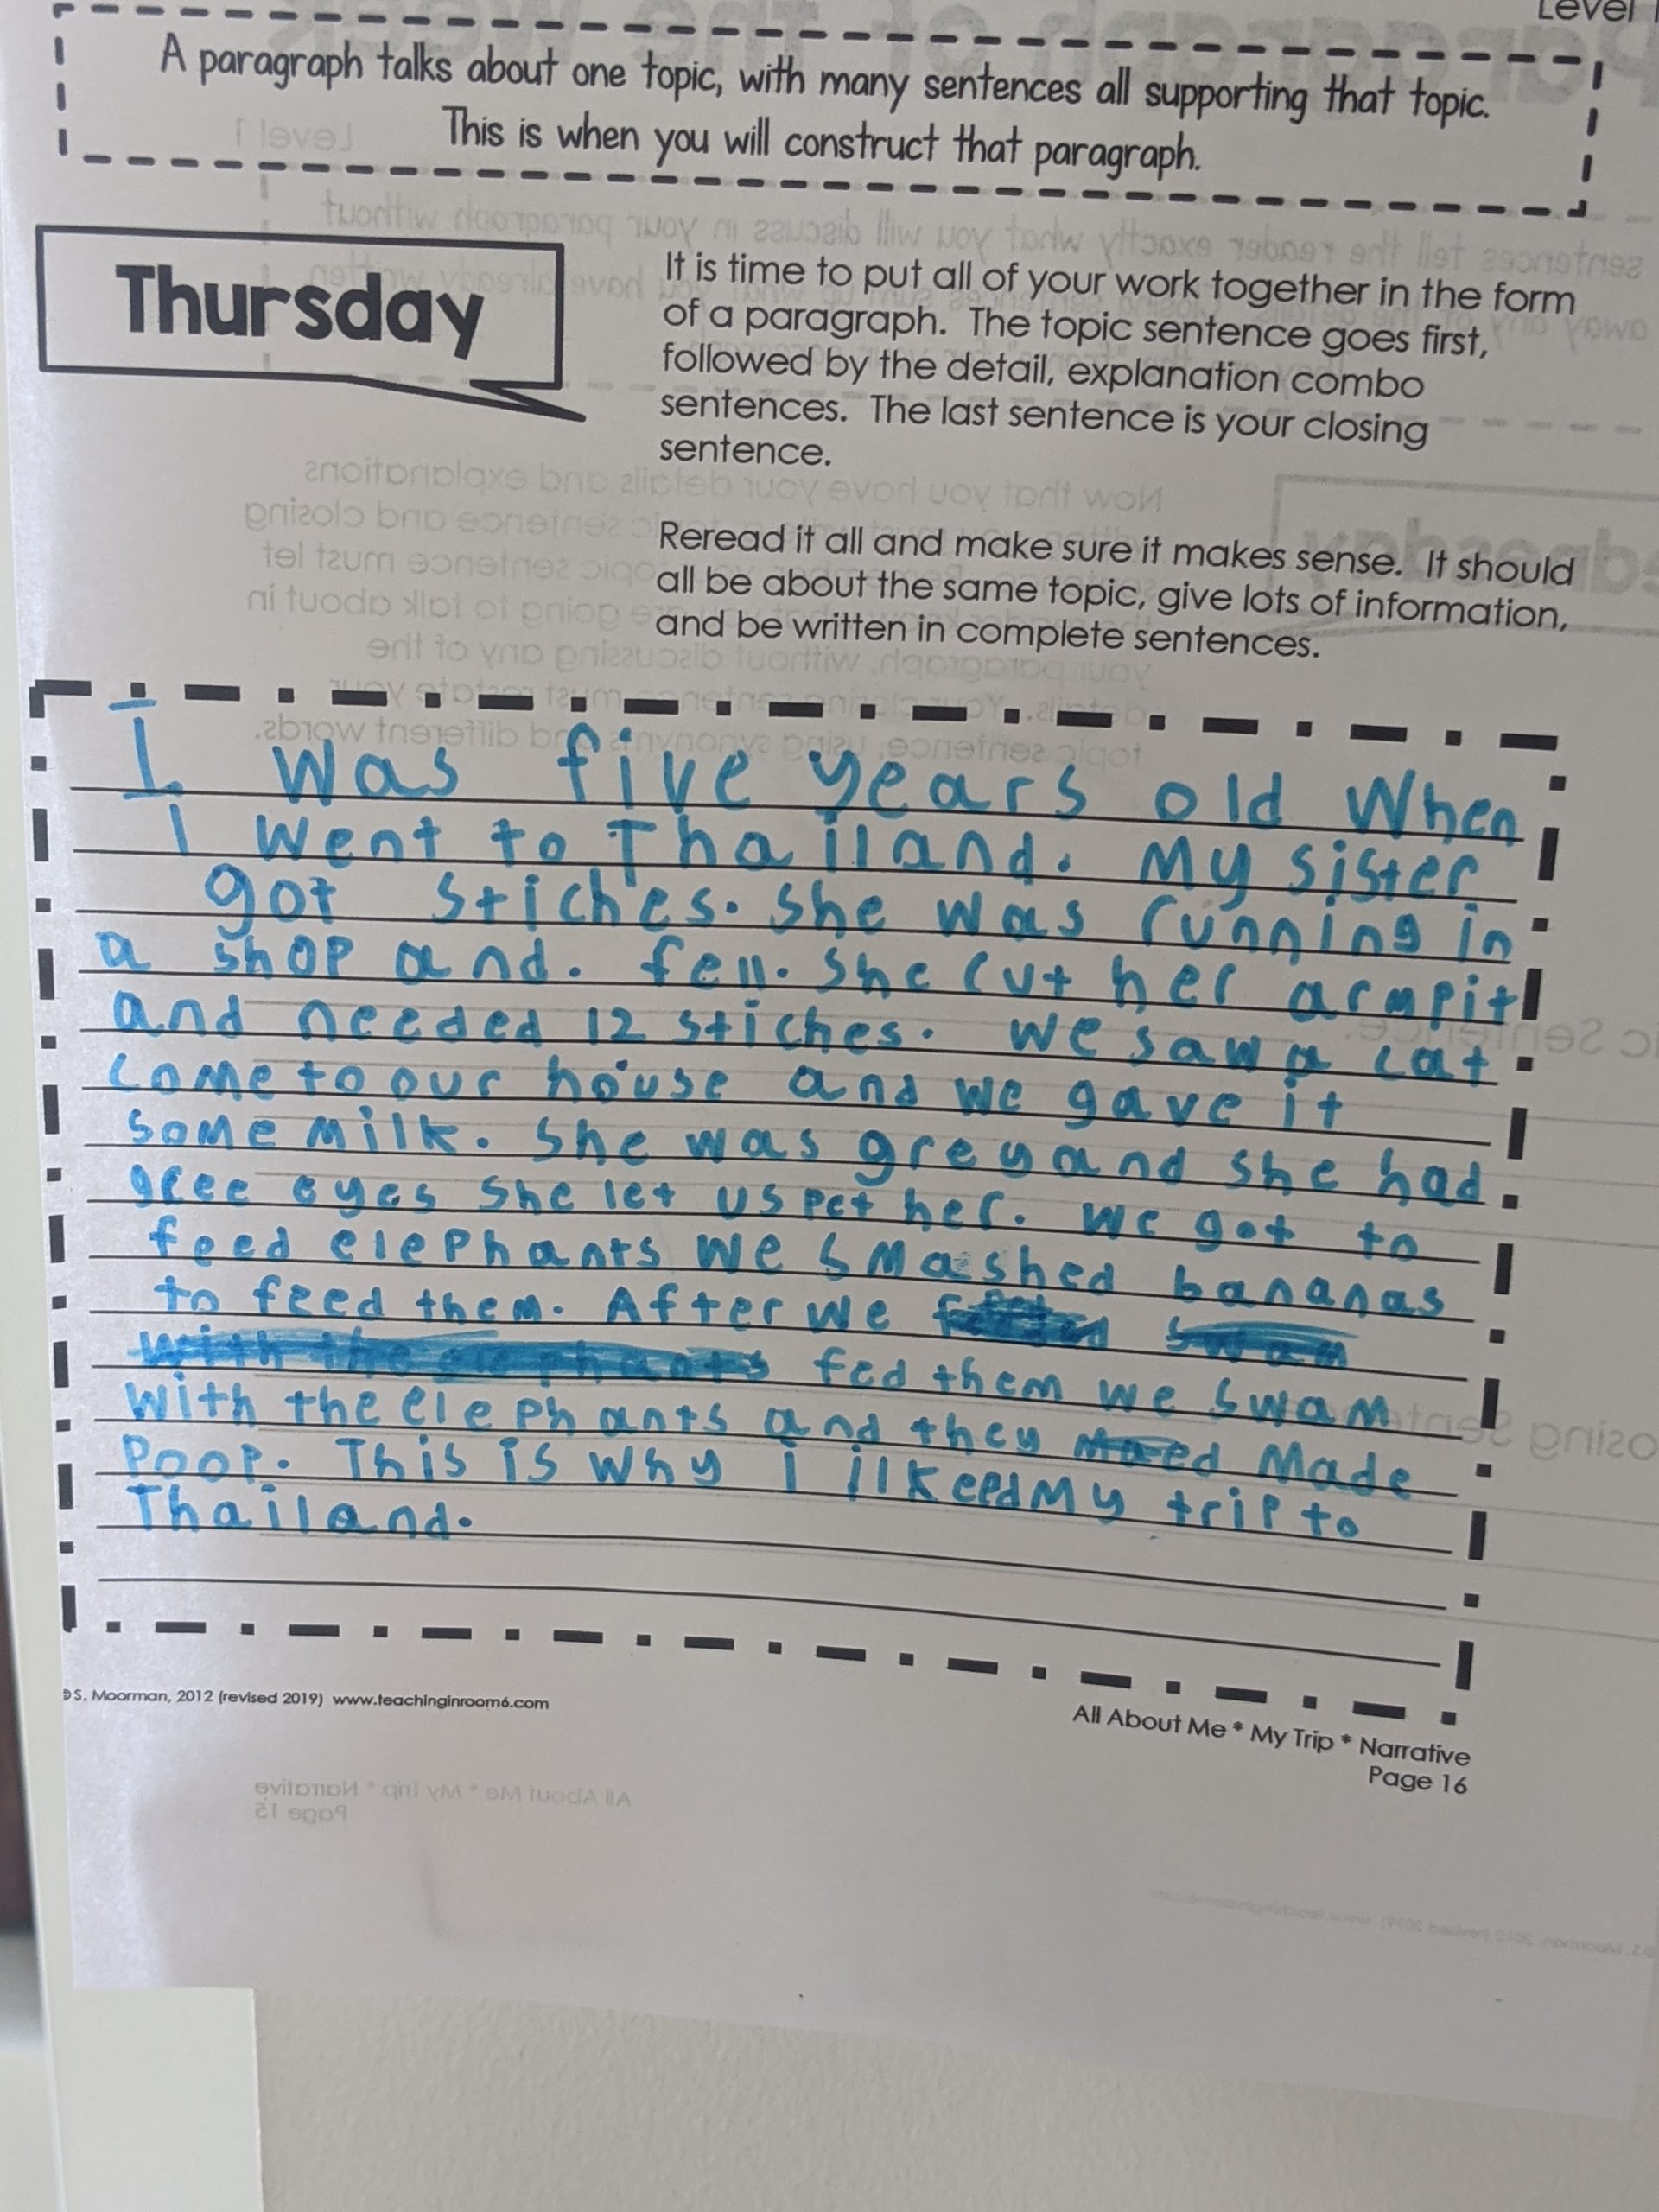 Level
A paragraph talks about one topic, with many sentences all supporting that topic.
This is when you will construct that paragraph.
Thursday
It is time to put all of your work together in the form
of a paragraph. The topic sentence goes first,
followed by the detail, explanation combo
sentences. The last sentence is your closing
sentence.
Reread it all and make sure it makes sense. It should
all be about the same topic, give lots of information,
and be written in complete sentences.
I was five years old When
I went to Thailand. My sister
got stiches. She was running in
a shop and. fell. She cut her armpit
and needed 12 stiches. We saw a cat
come to our house and we gave it
some milk. She was grey and she had
gree eyes she let us pet her. We got to
feed elephants we smashed bananas
to feed them. After we swam
with the elephants fed them we swam
with the elephants and they maed Made
Poop. This is why i ilkeed My trip to
Thailand.
©S. Moorman, 2012 (revised 2019) www.teachinginroom6.com
All About Me * My Trip * Narrative
Page 16
All About Me * My Trip * Narrative
Page 15